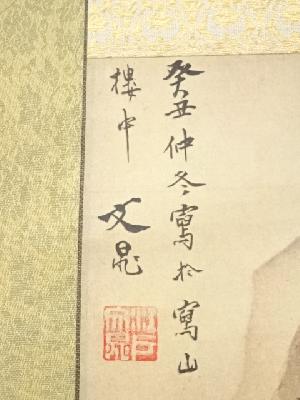 癸丑仲冬寫於寫山
樓中
文晁